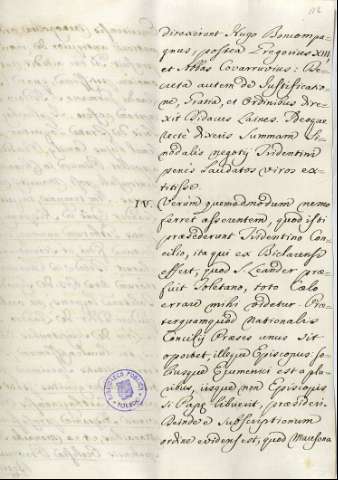 112
direxerunt Hugo Boncompa-
gnus, postea Gregorius XIII,
et Alfas Covarruvius: De-
creta autem de Justificatio-
ne, Gratia, et Ordinibus dire-
xit Didacus Lainez. Adeoque
recte dixeris Summam Si-
nodalis negotij Tridentini
penes laudatos viros ex-
titisse.
IV. Verùm quemadmodum nemo
ferret asserentem, quod isti
præsiderunt Tridentino Con-
cilio, ita qui ex Biclarensi
effert, quod S. Leander præ-
fuit Toletano, toto Cælo
errare mihi videtur. Præ-
terquamquod Nationalis
Concilij Præses unus sit
oportet, illeque Episcopus: se-
cusque Ecumenici est a plu-
ribus, iisque non Episcopis
si Papæ libuerit, præsideri.
Deinde e Subscriptionum
ordine evidens est, quod Massona
BIBLIOTECA PUBLICA
TOLEDO